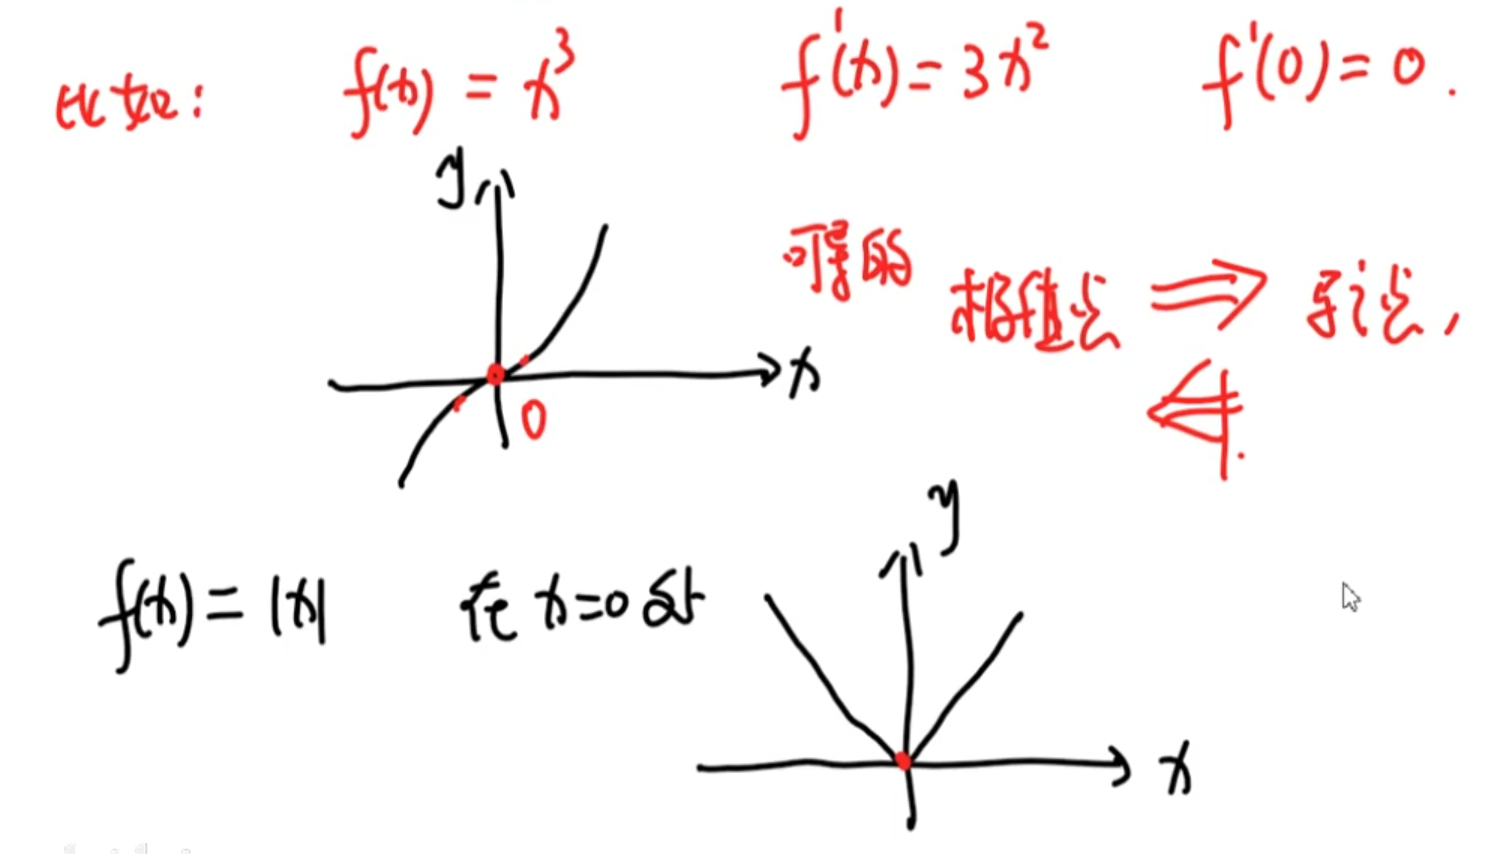 比如: f(x) = x³ f'(x) = 3x² f'(0) = 0.
y
可导的
极值点 ⇒ 驻点,
x
0
⇍.
y
f(x) = |x| 在 x=0 处
x